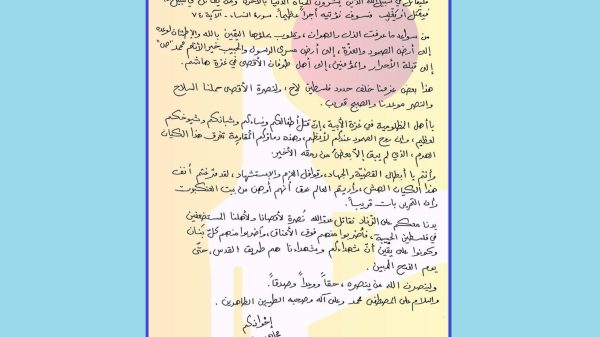 فليقاتل في سبيل الله الذين يشرون الحياة الدنيا بالآخرة ومن يقاتل في سبيل
فيقتل أو يَغلِب فسوف نؤتيه أجراً عظيماً. سورة النساء - الآية ٧٤
من سواعد ما عرفت الذل والهوان، وقلوب ملؤها اليقين بالله والإطمئنان لوعده
إلى أرض الصمود والعزّة، إلى أرض مسرى الرسول والحبيب خير الأنام محمد "ص"
إلى قبلة الأحرار والمؤمنين، إلى أهل طوفان الأقصى في غزة هاشم.
هذا بعض عزمنا خلف حدود فلسطين لاح، ولنصرة الأقصى حملنا السلاح
والنصر موعدنا والصبح قريب.
يا أهل المظلومية في غزة الأبية، إنّ قتل أطفالكم ونساءكم وشبانكم وشيوخكم
لعظيم، وإن روح الصمود عندكم لأعظم، وهذه دماؤكم المقاومة تغرق هذا الكيان
الهدم، الذي لم يبق إلا بعضٌ من رمقه الأخير.
وأنتم يا أبطال القضيّة والجهاد، وقوافل العزم والإستشهاد، لقد مرّغتم أنف
هذا الكيان الهش، وأريتم العالم حق أنهم أوهن من بيت العنكبوت
وأن التحرير بات قريباً.
يدنا معكم على الزّناد نقاتل عند الله نُصرة لأقصانا ولأهلنا المستضعفين
في فلسطين الحبيبة، فاضربوا منهم فوق الأعناق، واضربوا منهم كلّ بنان
وكونوا على يقينٍ أنّ شهداءكم وشهداءنا هم طريق القدس حتّى
يوم الفتح المبين.
ولينصرنّ الله من ينصره، حقاً ووعداً وصدقاً.
والسلام على المصطفى محمد وعلى آله وصحبه الطيبين الطاهرين.
إخوانكم